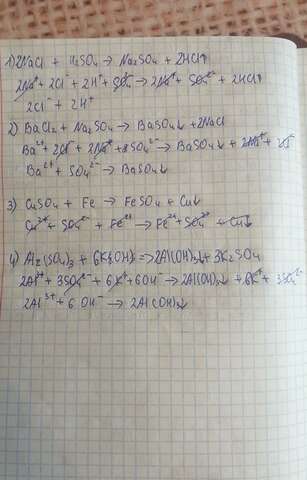 1) 2NaCl + H₂SO₄ → Na₂SO₄ + 2HCl↑
2Na⁺ + 2Cl⁻ + 2H⁺ + SO₄²⁻ → 2Na⁺ + SO₄²⁻ + 2HCl↑
2Cl⁻ + 2H⁺
2) BaCl₂ + Na₂SO₄ → BaSO₄↓ + 2NaCl
Ba²⁺ + 2Cl⁻ + 2Na⁺ + SO₄²⁻ → BaSO₄↓ + 2Na⁺ + 2Cl⁻
Ba²⁺ + SO₄²⁻ → BaSO₄↓
3) CuSO₄ + Fe → FeSO₄ + Cu↓
Cu²⁺ + SO₄²⁻ + Fe → Fe²⁺ + SO₄²⁻ + Cu↓
4) Al₂(SO₄)₃ + 6KOH => 2Al(OH)₃↓ + 3K₂SO₄
2Al³⁺ + 3SO₄²⁻ + 6K⁺ + 6OH⁻ → 2Al(OH)₃↓ + 6K⁺ + 3SO₄²⁻
2Al³⁺ + 6OH⁻ → 2Al(OH)₃↓